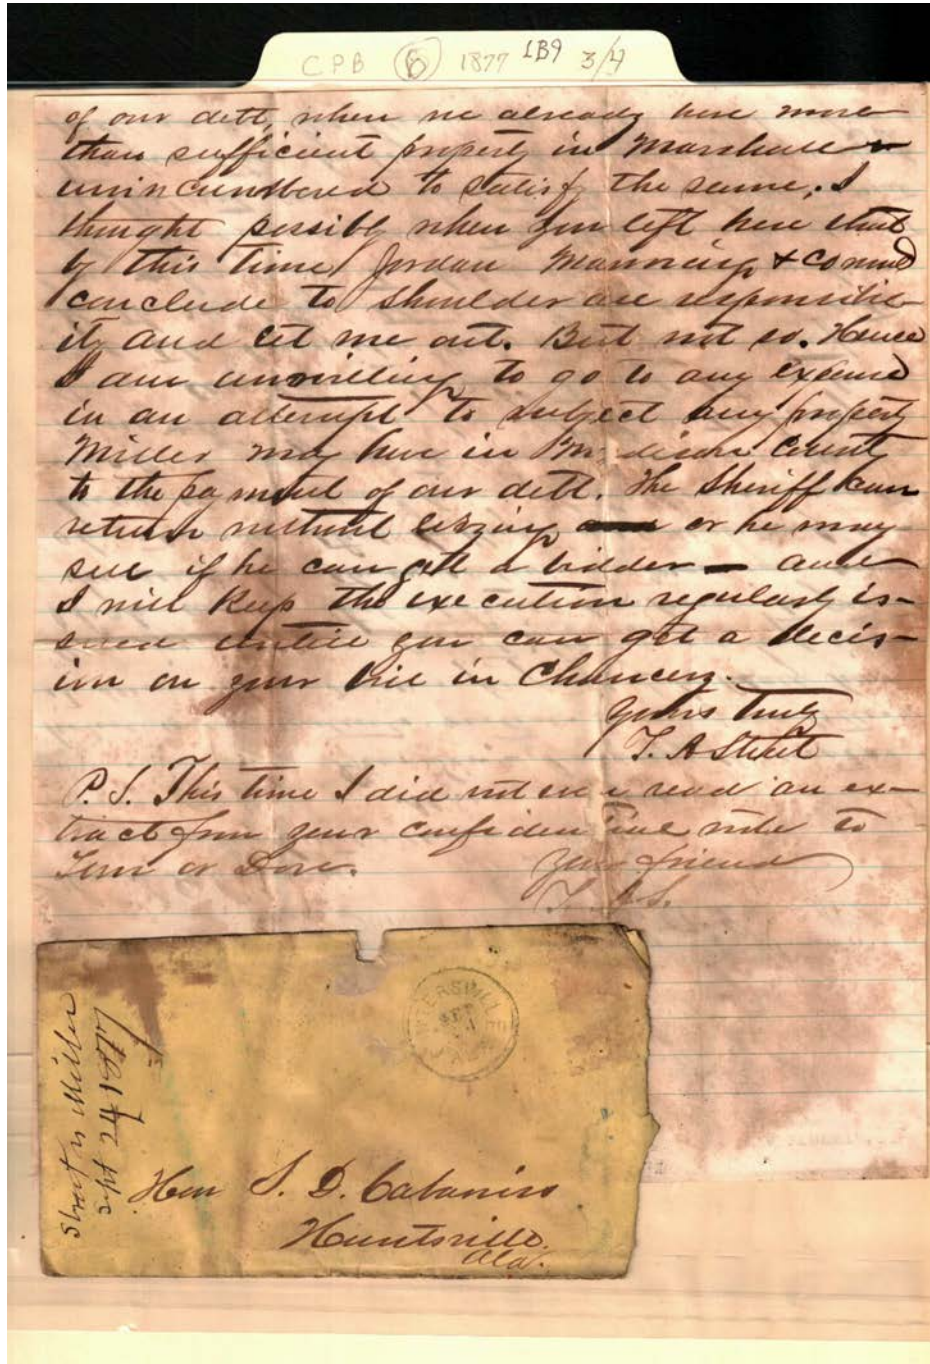 C.P.B 6 1877 1B9 3/4
of our debt, when we already have more
than sufficient property in Marshall
unincumbered to satisfy the same. I
thought possibly when you left here that
by this time Jordan Manning & Co would
conclude to shoulder all responsibil-
ity and let me out. But not so. Hence
I am unwilling to go to any expense
in an attempt to subject any property
Miller may have in Madison County
to the payment of our debt. The Sheriff can
return without levying or he may
sell if he can get a bidder — and
I will keep the execution regularly is-
sued until you can get a decis-
ion on your bill in Chancery.
Yours Truly
T. A Street
P. S. This time I did not even read an ex-
tract from your confidential note to
Tom or Dore.
Your friend
T. A S.
Street vs Miller
Sept 24 18
Hon S. D. Cabaniss
Huntsville
Ala.